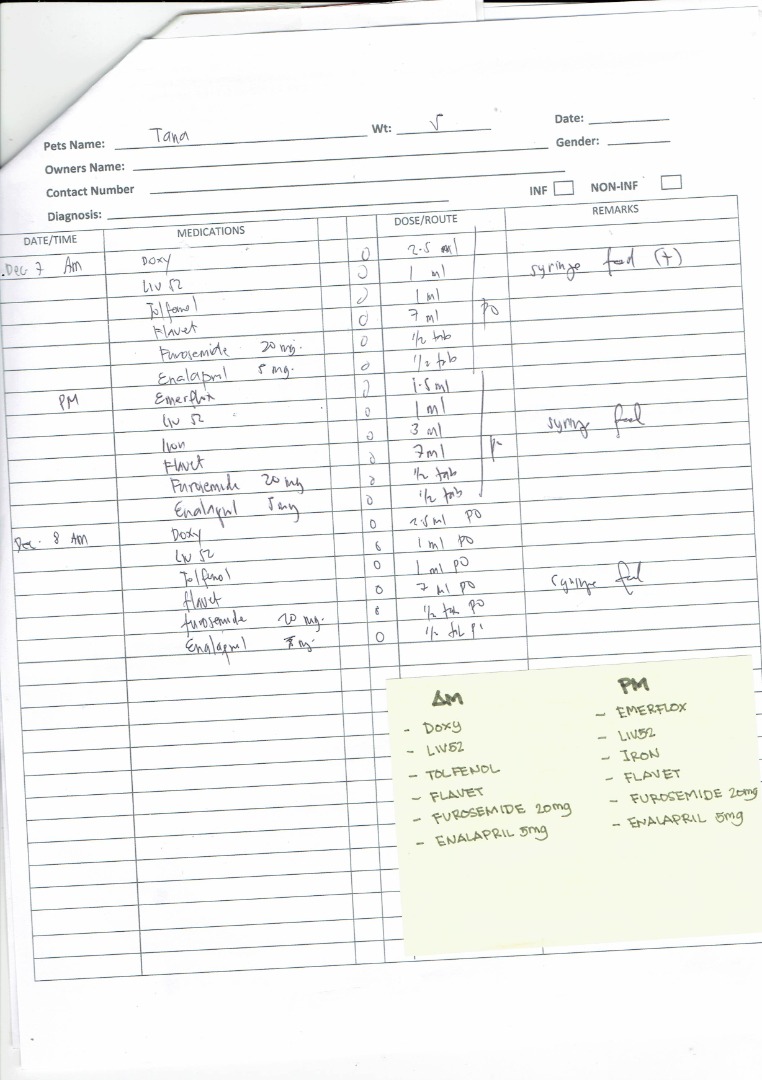 Pets Name: Tana Wt: 5 Date:
Owners Name: Gender:
Contact Number INF NON-INF
Diagnosis:
DATE/TIME MEDICATIONS DOSE/ROUTE REMARKS
Dec 7 Am Doxy 0 2.5 ml syringe feed (+)
Liv 52 0 1 ml
Tolfenol 0 1 ml
Flavet 0 7 ml PO
Furosemide 20 mg. 0 1/2 tab
Enalapril 5 mg. 0 1/2 tab
PM Emerflox 0 1.5 ml
Liv 52 0 1 ml syringe feed
Iron 0 3 ml
Flavet 0 7 ml
Furosemide 20 mg 0 1/2 tab
Enalapril 5 mg 0 1/2 tab
Dec. 8 AM Doxy 0 2.5 ml PO
Liv 52 0 1 ml PO
Tolfenol 0 1 ml PO syringe
flavet 0 7 ml PO
furosemide 20 mg. 0 1/2 tab PO
Enalapril mg. 0 1/2 tab
AM
- DOXY
- LIV52
- TOLFENOL
- FLAVET
- FUROSEMIDE 20mg
- ENALAPRIL 5mg
PM
- EMERFLOX
- LIV52
- IRON
- FLAVET
- FUROSEMIDE 20mg
- ENALAPRIL 5mg